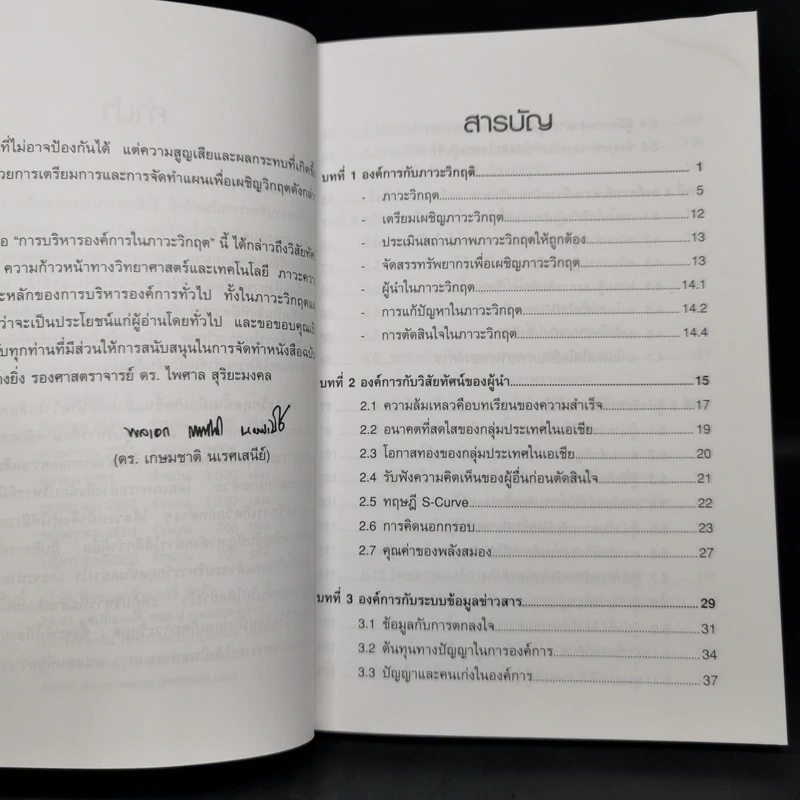 คำนำ
ที่ไม่อาจป้องกันได้ แต่ความสูญเสียและผลกระทบที่เกิดขึ้น
วยการเตรียมการและการจัดทำแผนเพื่อเผชิญวิกฤตดังกล่าว
อ "การบริหารองค์การในภาวะวิกฤต" นี้ ได้กล่าวถึงวิสัยทัศ
ความก้าวหน้าทางวิทยาศาสตร์และเทคโนโลยี ภาวะควา
ะหลักของการบริหารองค์การทั่วไป ทั้งในภาวะวิกฤตและ
ว่าจะเป็นประโยชน์แก่ผู้อ่านโดยทั่วไป และขอขอบคุณเป็
ับทุกท่านที่มีส่วนให้การสนับสนุนในการจัดทำหนังสือฉบับ
างยิ่ง รองศาสตราจารย์ ดร. ไพศาล สุริยะมงคล
(ดร. เกษมชาติ นเรศเสนีย์)
สารบัญ
บทที่ 1 องค์การกับภาวะวิกฤติ 1
- ภาวะวิกฤต 5
- เตรียมเผชิญภาวะวิกฤต 12
- ประเมินสถานภาพภาวะวิกฤตให้ถูกต้อง 13
- จัดสรรทรัพยากรเพื่อเผชิญภาวะวิกฤต 13
- ผู้นำในภาวะวิกฤต 14.1
- การแก้ปัญหาในภาวะวิกฤต 14.2
- การตัดสินใจในภาวะวิกฤต 14.4
บทที่ 2 องค์การกับวิสัยทัศน์ของผู้นำ 15
2.1 ความล้มเหลวคือบทเรียนของความสำเร็จ 17
2.2 อนาคตที่สดใสของกลุ่มประเทศในเอเชีย 19
2.3 โอกาสทองของกลุ่มประเทศในเอเชีย 20
2.4 รับฟังความคิดเห็นของผู้อื่นก่อนตัดสินใจ 21
2.5 ทฤษฎี S-Curve 22
2.6 การคิดนอกกรอบ 23
2.7 คุณค่าของพลังสมอง 27
บทที่ 3 องค์การกับระบบข้อมูลข่าวสาร 29
3.1 ข้อมูลกับการตกลงใจ 31
3.2 ต้นทุนทางปัญญาในการองค์การ 34
3.3 ปัญญาและคนเก่งในองค์การ 37